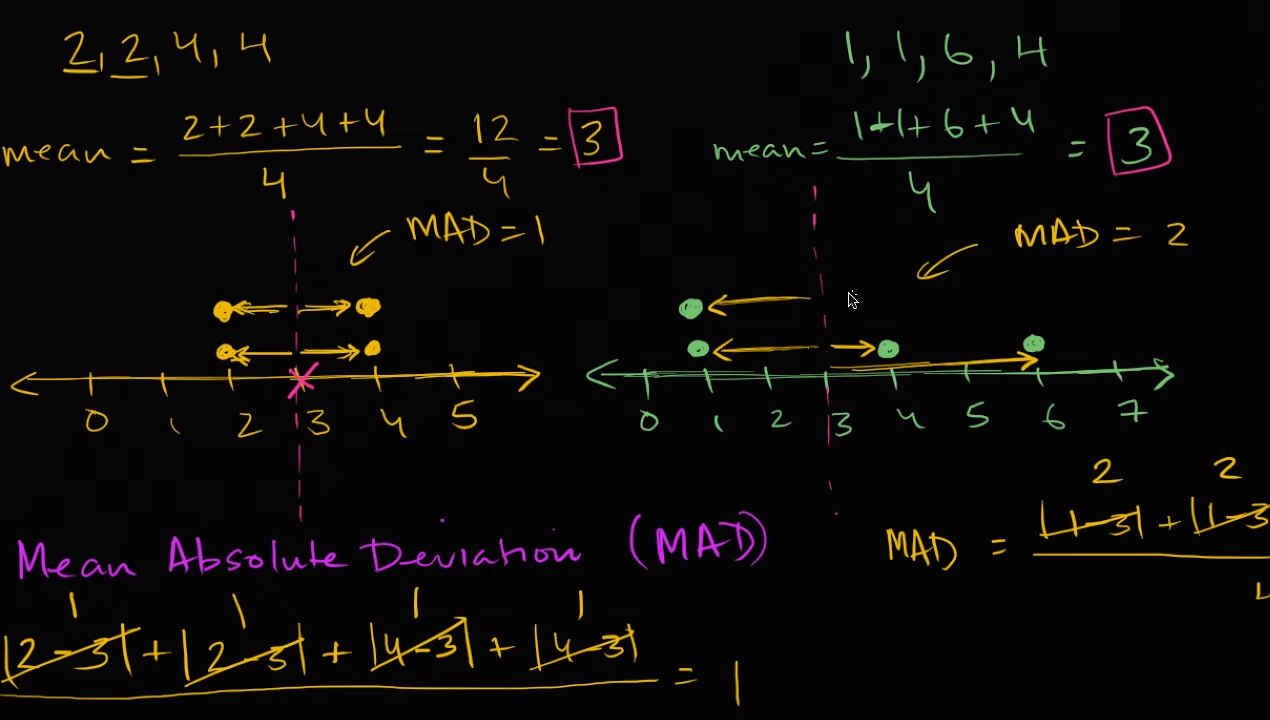 2, 2, 4, 4
mean = 2+2+4+4 / 4 = 12 / 4 = 3
MAD = 1
0 1 2 3 4 5
1, 1, 6, 4
mean = 1+1+6+4 / 4 = 3
MAD = 2
0 1 2 3 4 5 6 7
Mean Absolute Deviation (MAD)
1 1 1 1
|2-3| + |2-3| + |4-3| + |4-3| = 1
2 2
MAD = |1-3| + |1-3
4